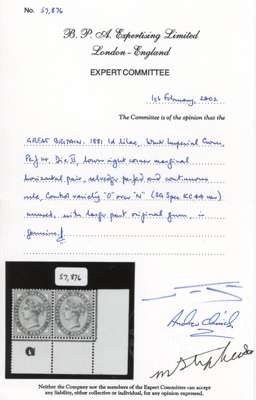 No. 57,876
B. P. A. Expertising Limited
London - England
EXPERT COMMITTEE
1st February, 2002
The Committee is of the opinion that the
GREAT BRITAIN. 1881 1d lilac, Wmk Imperial Crown,
Perf 14. Die II, lower right corner marginal
horizontal pair, selvedge perfed and continuous
rule, Control variety "O" over "N" (SG Spec
unused, with large part original gum, is
genuine.
57,876
Neither the Company nor the members of the Expert Committee can accept
any liability, either collective or individual, for any opinion expressed.